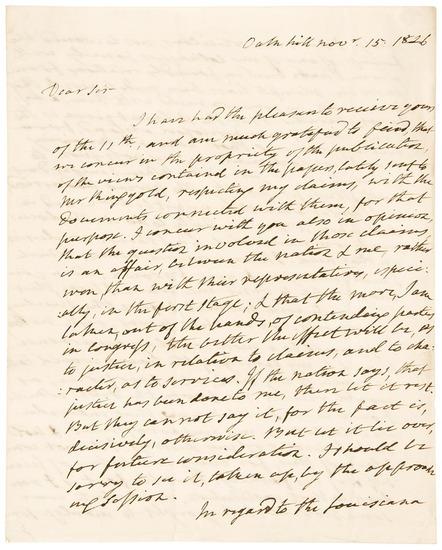 Oak hill novr. 15. 1826
Dear Sir
I have had the pleasure to receive yours
of the 11th, and am much gratified to find that
we concur in the propriety of the publication,
of the views contained in the papers, lately sent to
Mr Ringgold, respecting my claims, with the
documents connected with them, for that
purpose. I concur with you also in opinion,
that the question involved in those claims,
is an affair, between the nation & me, rather
than with their representatives, speci-
ally, in the first stage; & that the more, I am
taken, out of the hands, of contending parties,
in congress, the better the effect will be, as
to justice, in relation to claims, and to cha-
racter, as to services. If the nation says, that
justice has been done to me, then let it rest.
But they cannot say it, for the fact is,
decisively, otherwise. But let it lie over,
for future consideration. I should be
sorry to see it, taken up, by the approach
ing session.
In regard to the Louisiana